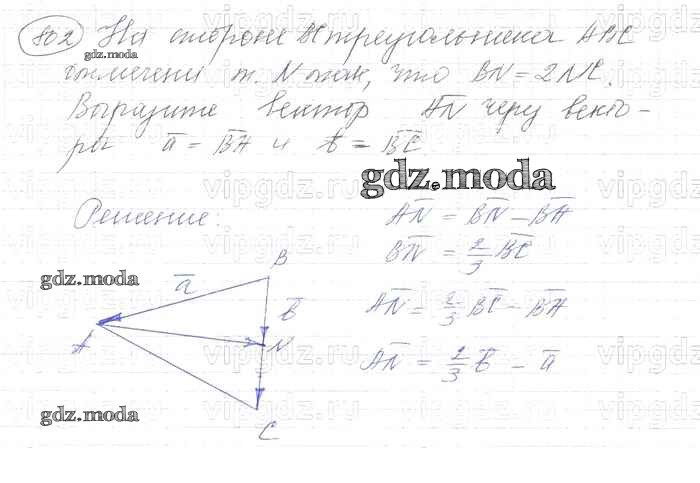 802 На стороне BC треугольника ABC
gdz.moda
отмечена т. N так, что BN = 2NC.
Выразите вектор AN через векто-
ры a = BA и b = BC
gdz.moda
Решение:
AN = BN - BA
BN = 2/3 BC
AN = 2/3 BC - BA
AN = 2/3 b - a
B
gdz.moda
a
b
A
N
gdz.moda
C
vipgdz.ru